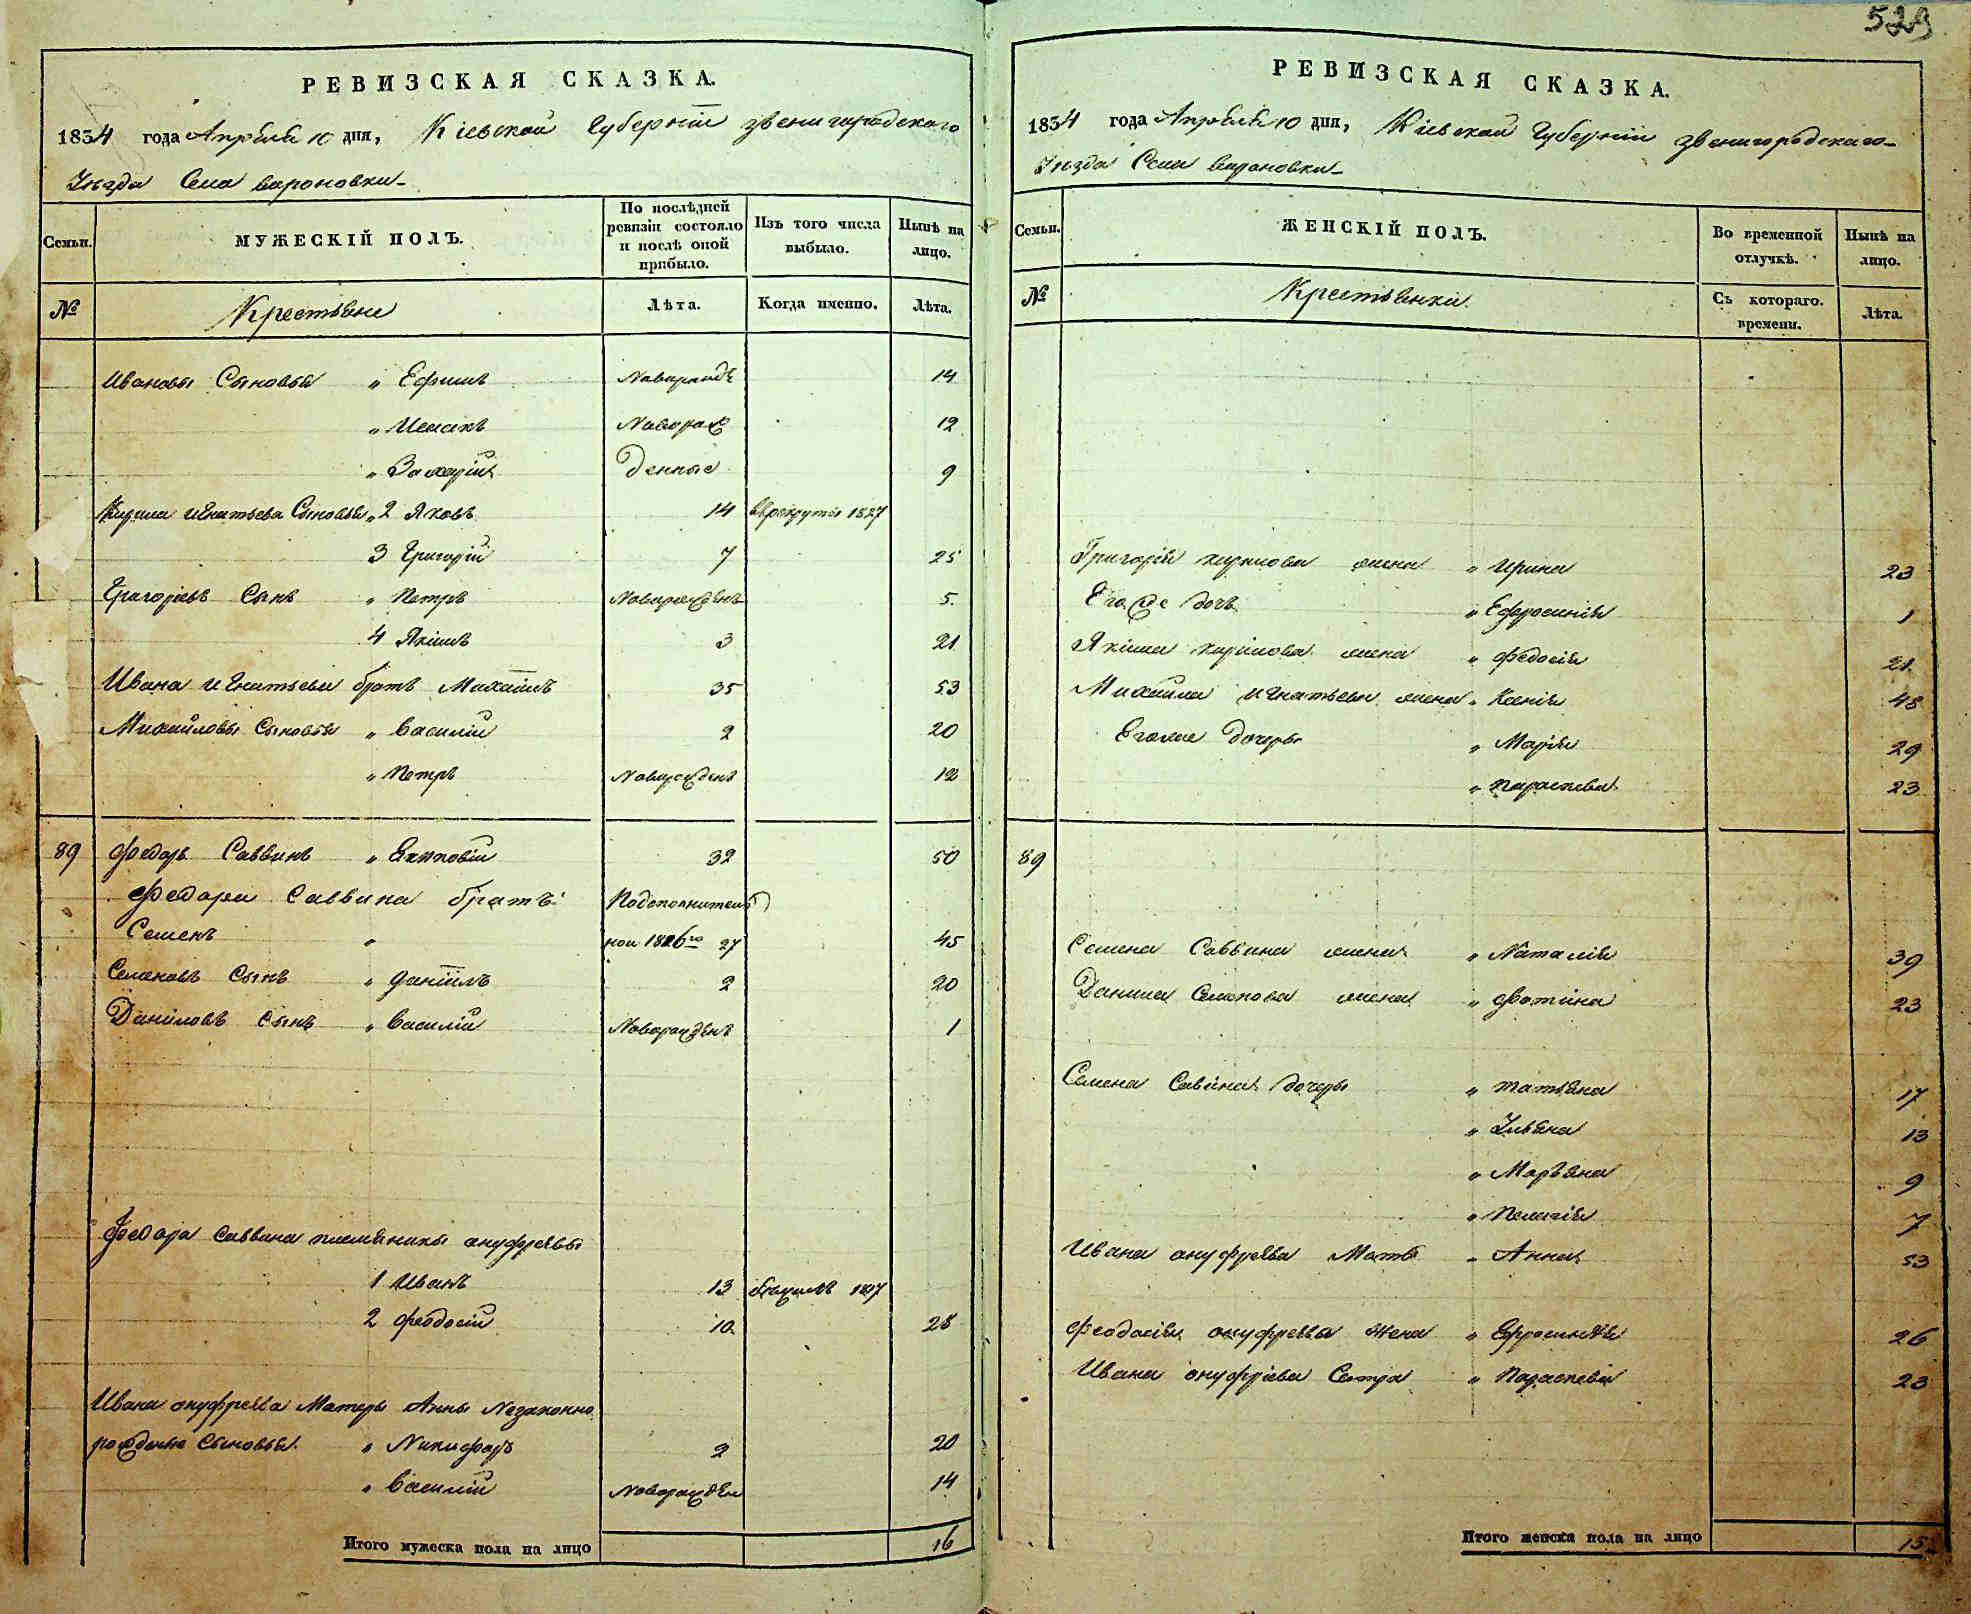 529
РЕВИЗСКАЯ СКАЗКА.
1834 года Апреля 10 дня, Кіевской Губерніи звенигородскаго
Уѣзда Села вороновки
Семьи. МУЖЕСКІЙ ПОЛЪ. По послѣдней ревизіи состояло и послѣ оной прибыло. Изъ того числа выбыло. Нынѣ на лицо.
№ Крестьяне Лѣта. Когда именно. Лѣта.
Ивановы Сыновья " Ефимъ 14
" Исакъ Неворож 12
" Захарій денные 9
Кирила игнатьева Сыновья 2 Яковъ 14 врекруты 1827
3 Григорій 7 25
Григоріевъ Сынъ " ПетръНоворожденъ 5
4 Якимъ 3 21
Ивана игнатьева братъ Михаилъ 35 53
Михайловы Сыновья " Василій 2 20
" Петръ Новорожденъ 12
89 Федоръ Саввинъ 32 50
Федора Саввина братъ Подополнитель
Семенъ " ной 1816го 27 45
Семеновъ Сынъ " Даніилъ 2 20
Даниловъ Сынъ " Василій Новорожденъ 1
Федора Саввина племяники ануфріевы
1 Иванъ 13
2 Феодосій 10 28
Ивана онуфріева Матери Анны Незаконно
рожденые Сыновья " Никифоръ 2 20
" Василій Новорожден 14
Итого мужеска пола на лицо 16
РЕВИЗСКАЯ СКАЗКА.
1834 года Апреля 10 дня, Кіевской Губерніи звенигородскаго
Уѣзда Села вороновки
Семьи. ЖЕНСКІЙ ПОЛЪ. Во временной отлучкѣ. Нынѣ на лицо.
№ Крестьянки Съ котораго времени. Лѣта.
Григорія кирилова жена " Ирина 23
Его же дочь " Ефросинія 1
Якима кирилова жена " Федосія 21
Михаила игнатьева жена " Ксенія 48
Егоже дочери " Марія 29
" Параскева 23
89
Семена Саввина жена " Наталія 39
Данила Семенова жена " Фотина 23
Семена Савина дочери " Татьяна 17
" Ульяна 13
" Марьяна 9
" Пелагія 7
Ивана онуфріева Мать " Анна 53
Феодосія онуфріева Жена " Ефросинія 26
Ивана онуфріева Сестра " Параскева 23
Итого женска пола на лицо 15